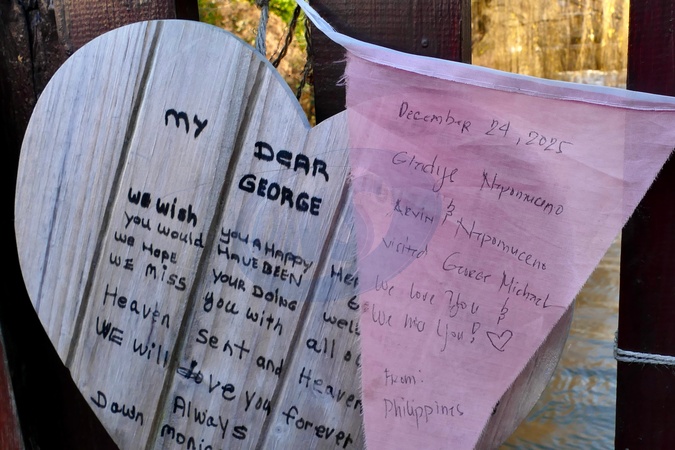 MY
DEAR
GEORGE
WE WISH YOU A HAPPY
YOU WOULD HAVE BEEN
WE HOPE YOUR DOING
WE MISS YOU with
Heaven Sent and
WE Will Love You
Always forever
Dawn monic
December 24, 2025
Nepomuceno
Kevin & Nepomuceno
visited George Michael
We love You &
We miss You! ♡
From:
Philippines